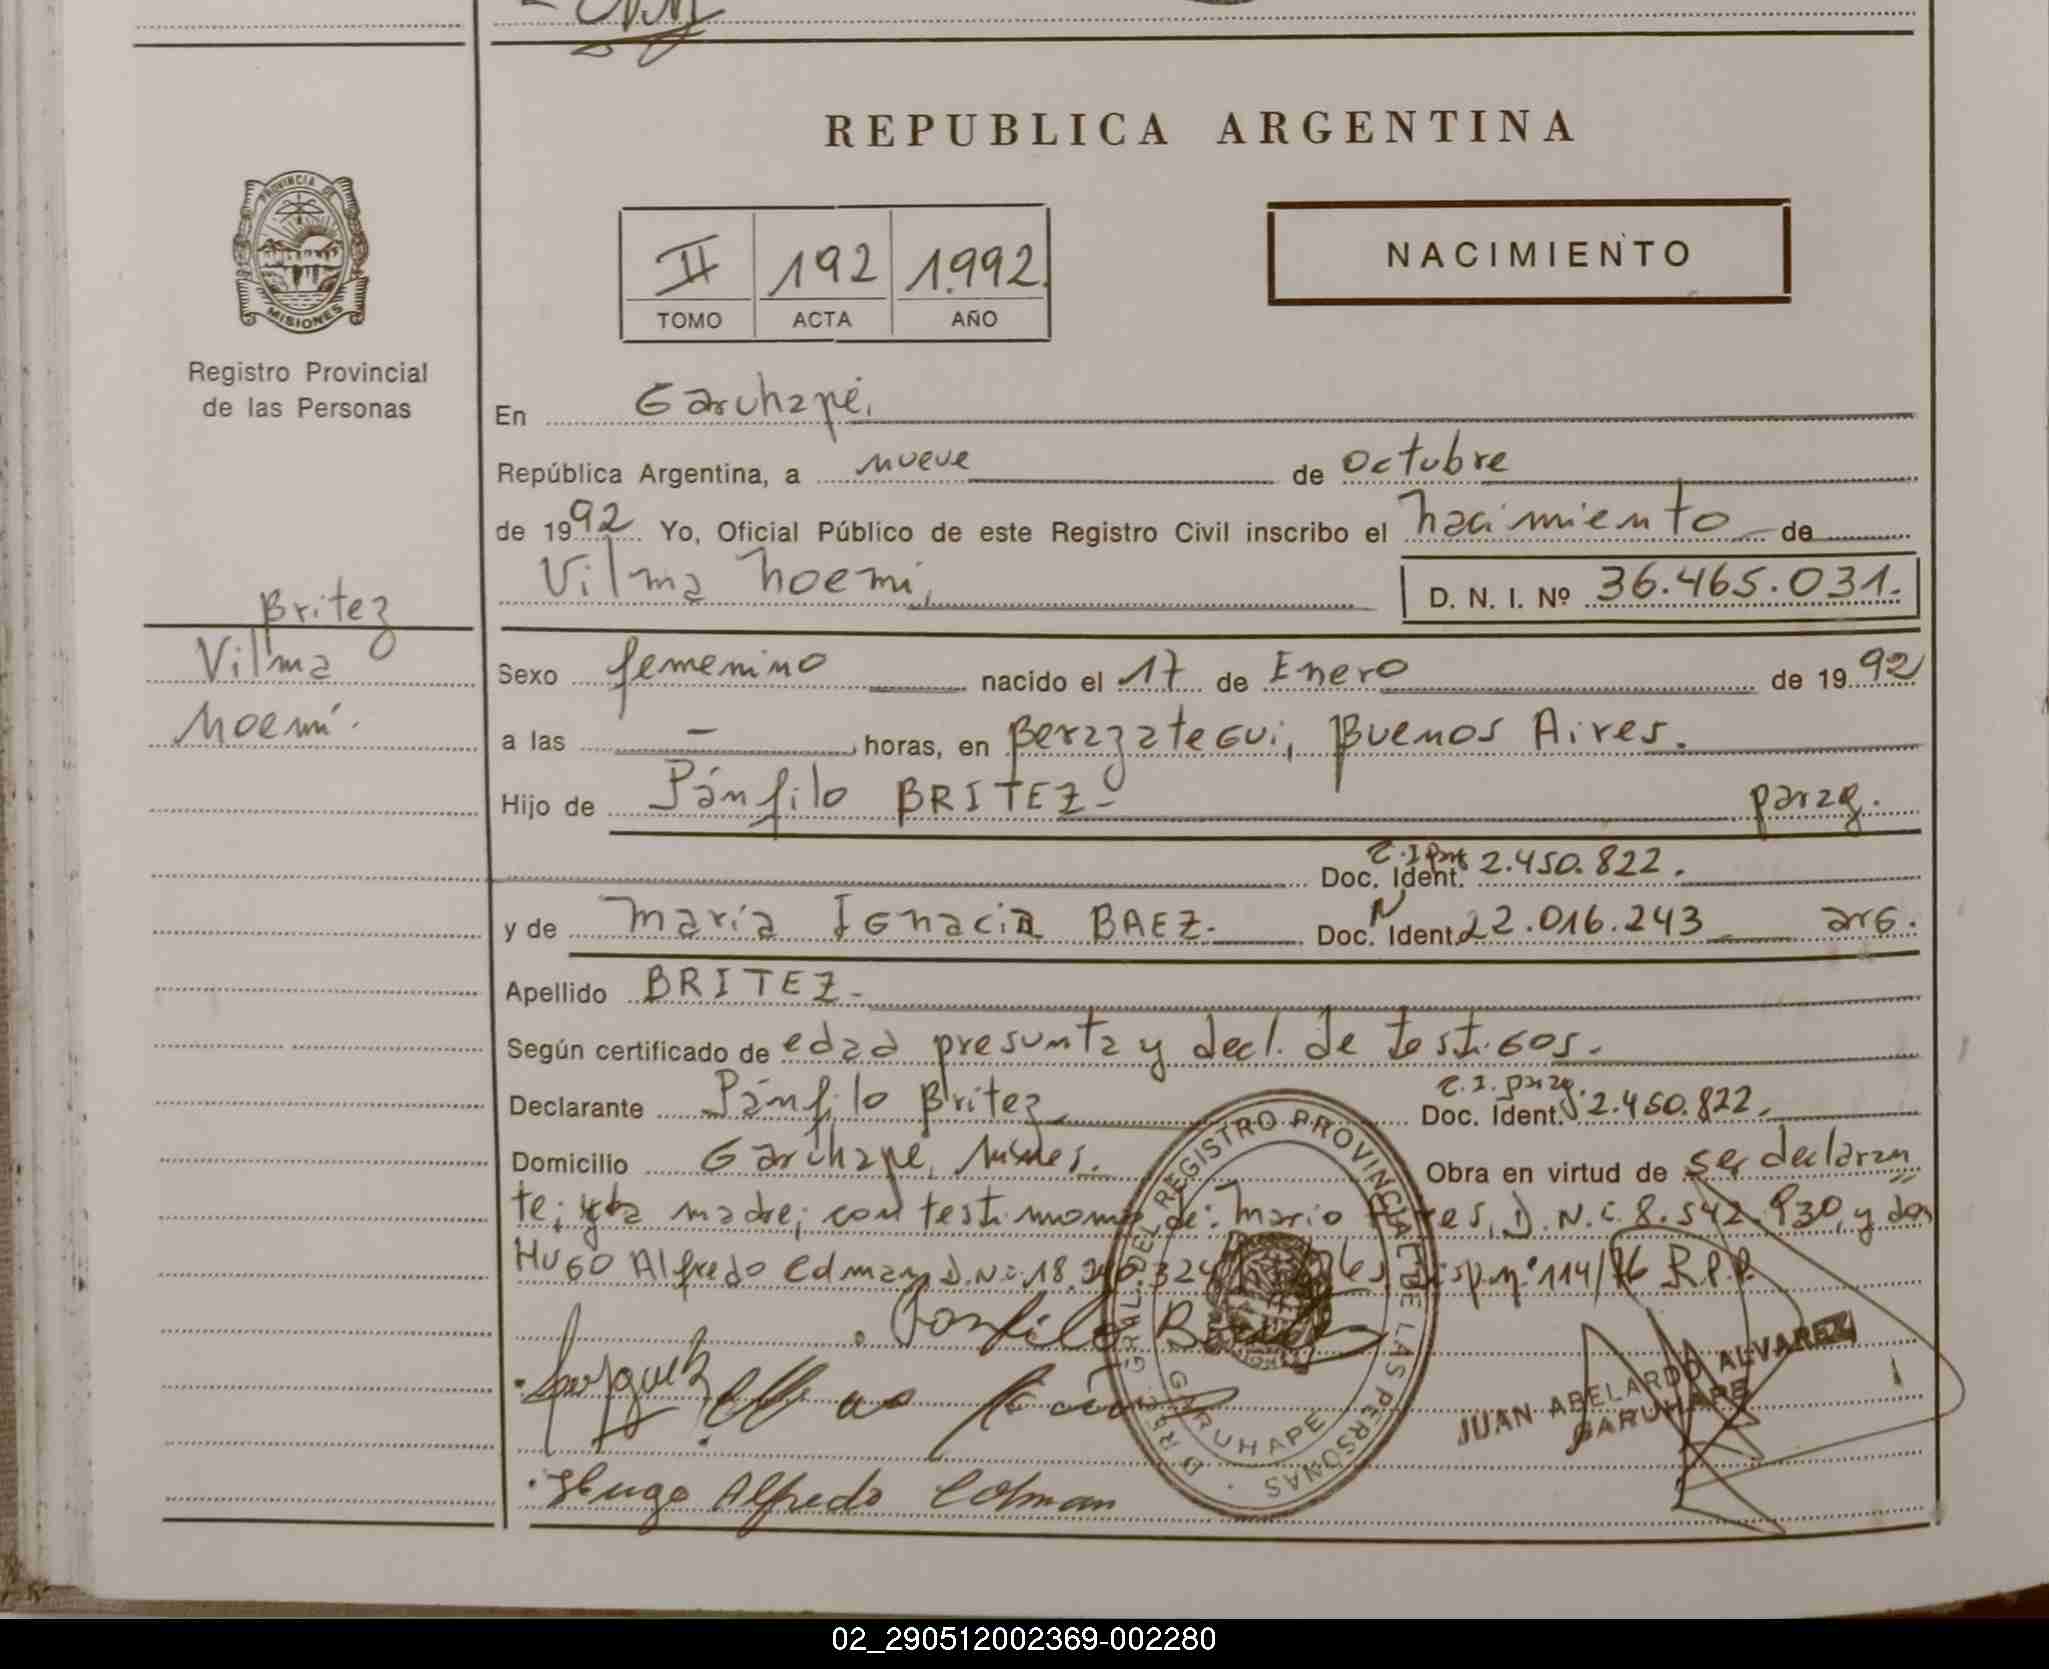 REPUBLICA ARGENTINA
PROVINCIA DE
MISIONES
Registro Provincial
de las Personas
II 192 1.992.
TOMO ACTA AÑO
NACIMIENTO
En Garuhapé,
República Argentina, a nueve de octubre
de 1992 Yo, Oficial Público de este Registro Civil inscribo el nacimiento de
Vilma Noemi, D. N. I. Nº 36.465.031.
Britez
Vilma
Noemí.
Sexo femenino nacido el 17 de Enero de 1992
a las — horas, en Berazategui, Buenos Aires.
Hijo de Pánfilo BRITEZ- parag.
Doc. Ident. C.I par 2.450.822.
y de María Ignacia BAEZ- Doc. Ident. N 22.016.243 arg.
Apellido BRITEZ-
Según certificado de edad presunta y decl. de testigos.
Declarante Pánfilo Britez Doc. Ident. C.I. parag. 2.450.822.
Domicilio Garuhapé, Mnes. Obra en virtud de ser declaran
te; y la madre; con testimonio de: Mario D.N.i. 8.542.930, y don
Hugo Alfredo Colman D.N.i. 18. Disp. nº 114/76 R.P.P.
Panfilo
Hugo Alfredo Colman
GRAL. DEL REGISTRO PROVINCIAL DE LAS PERSONAS
GARUHAPE
JUAN ABELARDO ALVAREZ
GARUHAPE
02_290512002369-002280